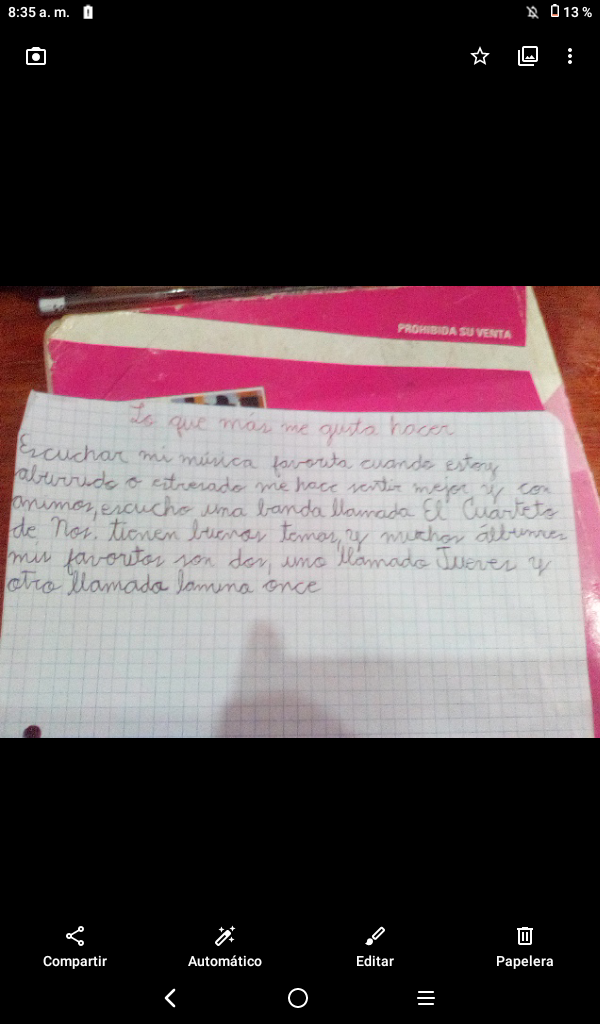 8:35 a. m.
13 %
PROHIBIDA SU VENTA
Lo que más me gusta hacer
Escuchar mi música favorita cuando estoy
aburrido o estresado me hace sentir mejor y con
animos, escucho una banda llamada El Cuarteto
de Nos. tienen buenos temas, y muchos álbumes
mis favoritos son dos, uno llamado Jueves y
otro llamada lamina once
Compartir
Automático
Editar
Papelera